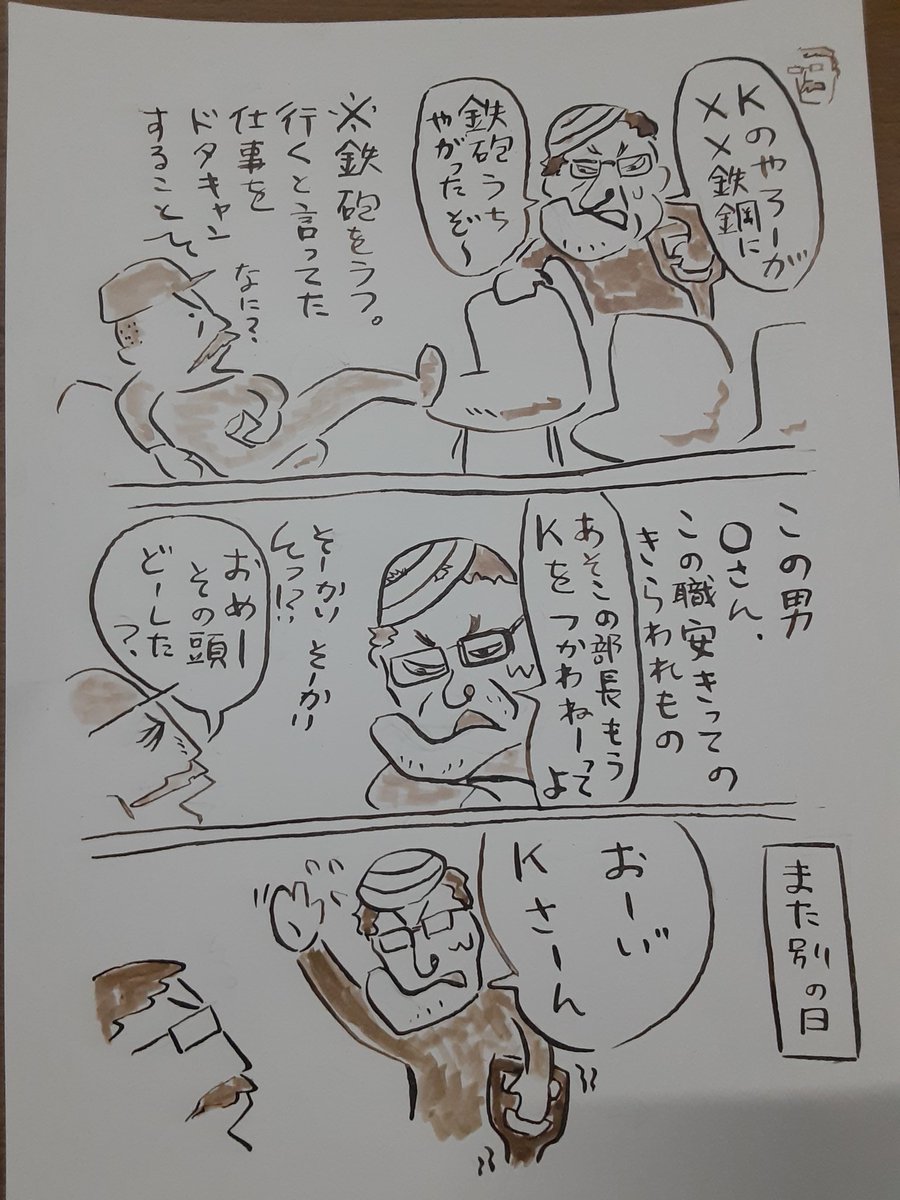 Kのやろーが
××鉄鋼に
鉄砲うち
やがったぞ〜
※鉄砲をうつ。
行くと言ってた
仕事を
ドタキャン
すること
なに?
この男
〇さん、
この職安きっての
きらわれもの
あそこの部長もう
Kをつかわねーってよ
そーかい そーかい
んっ!?
おめー
その頭
どーした
?
また別の日
おーい
Kさーん